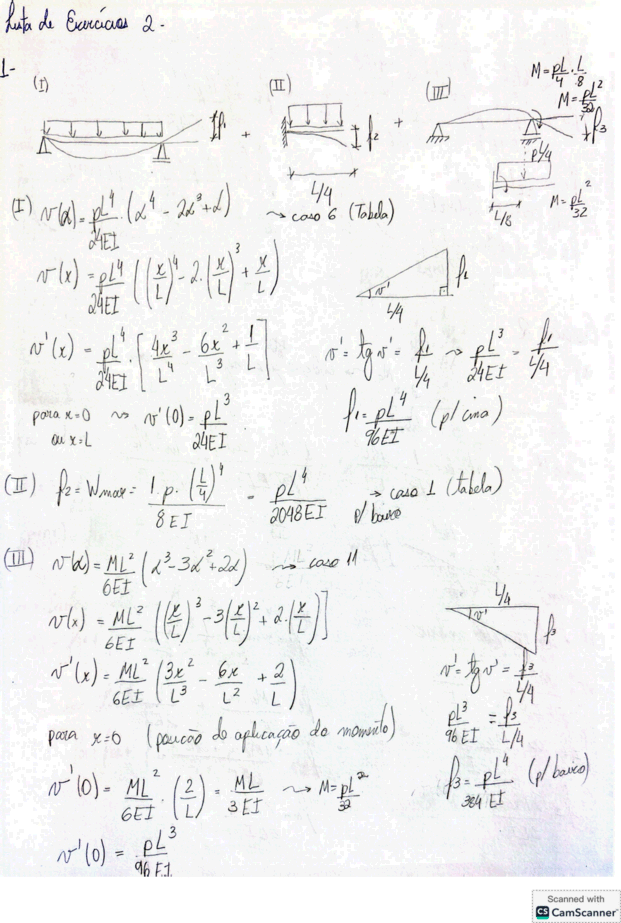 Lista de Exercícios 2.
1-
(I) (II) (III)
M = pL/4 · L/8
M = pL²/32
f₁ + f₂ + f₃
L/4
pL/4
L/8
M = pL²/32
(I) v(α) = pL⁴/24EI · (α⁴ - 2α³ + α) ~> caso 6 (Tabela)
v(x) = pL⁴/24EI ((x/L)⁴ - 2·(x/L)³ + x/L)
v' f₁
L/4
v'(x) = pL⁴/24EI · [4x³/L⁴ - 6x²/L³ + 1/L]
v' = tg v' = f₁/L/4 ~> pL³/24EI = f₁/L/4
para x=0 ~> v'(0) = pL³/24EI
ou x=L
f₁ = pL⁴/96EI (p/ cima)
(II) f₂ = Wmax = 1·p·(L/4)⁴/8EI = pL⁴/2048EI → caso 1 (tabela)
p/ baixo
(III) v(α) = ML²/6EI (α³ - 3α² + 2α) ~> caso 11
v(x) = ML²/6EI ((x/L)³ - 3(x/L)² + 2·(x/L)]
L/4
v' f₃
v'(x) = ML²/6EI (3x²/L³ - 6x/L² + 2/L)
v' = tg v' = f₃/L/4
para x=0 (posição de aplicação do momento)
pL³/96EI = f₃/L/4
v'(0) = ML²/6EI · (2/L) = ML/3EI ~> M = pL²/32
f₃ = pL⁴/384EI (p/ baixo)
v'(0) = pL³/96EI
Scanned with
CS CamScanner